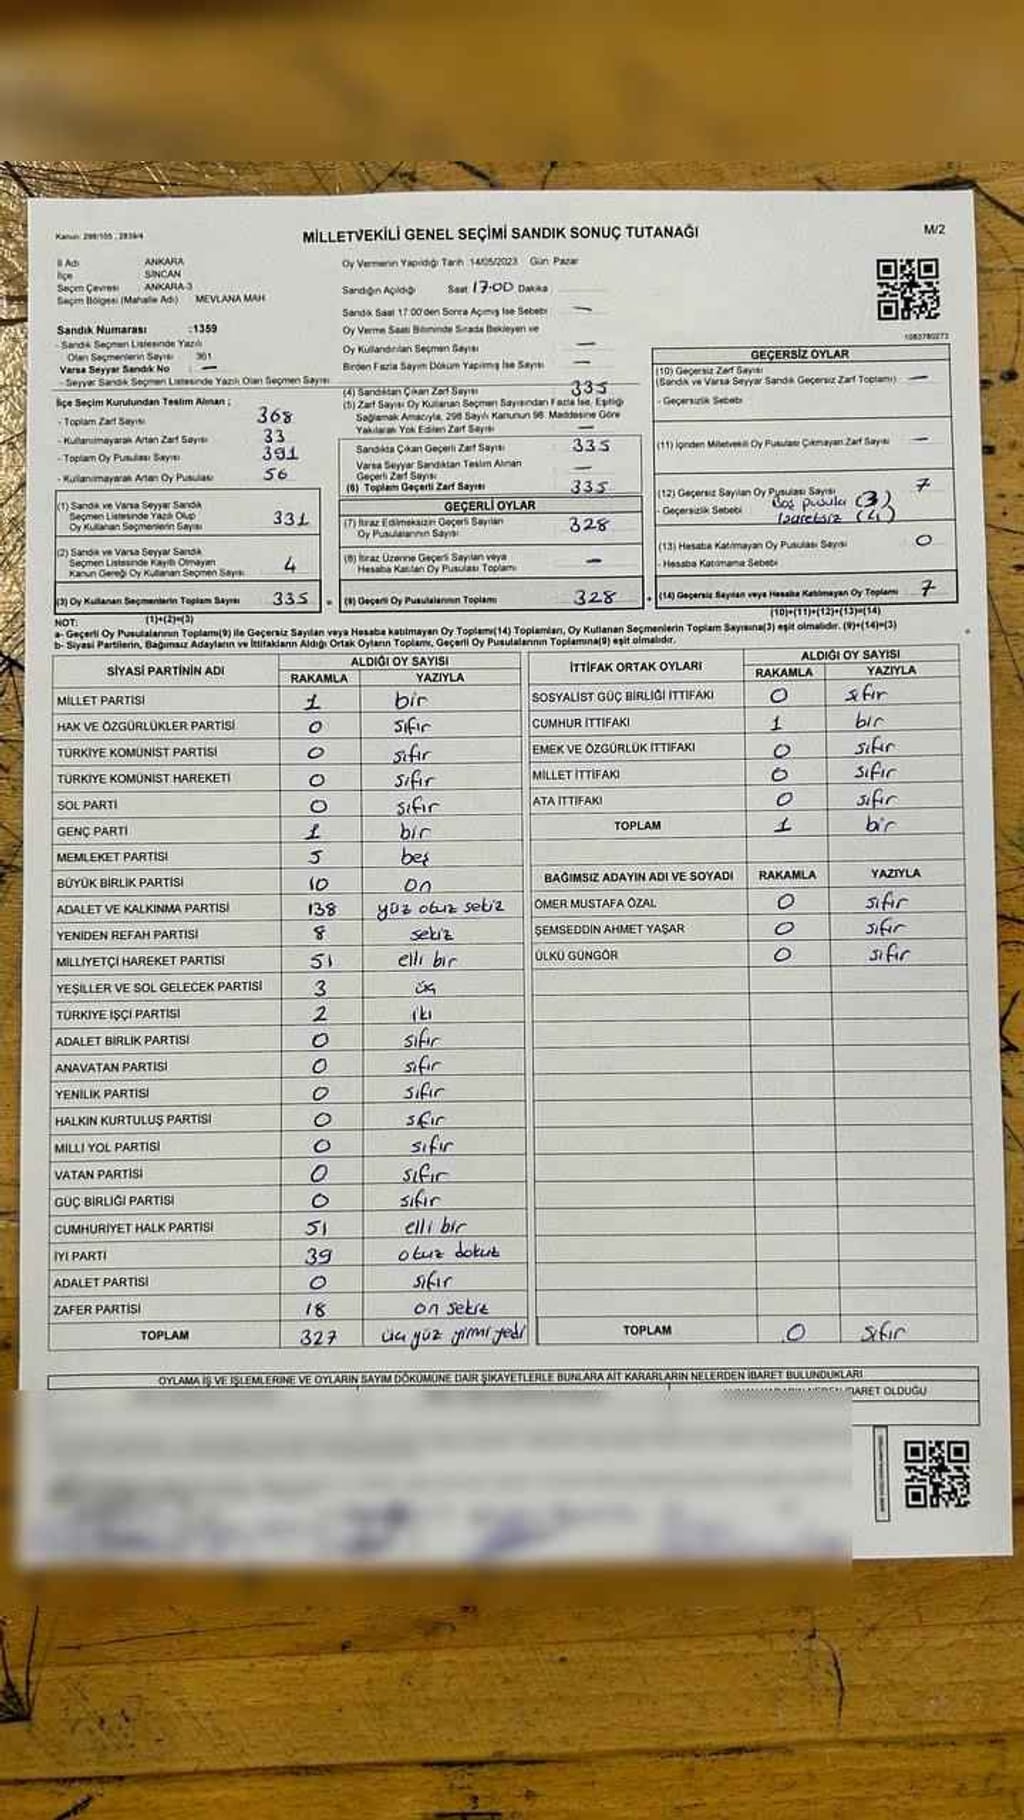 Kanun: 298/105 , 2839/4
MİLLETVEKİLİ GENEL SEÇİMİ SANDIK SONUÇ TUTANAĞI
M/2
İl Adı ANKARA
İlçe SİNCAN
Seçim Çevresi ANKARA-3
Seçim Bölgesi (Mahalle Adı) MEVLANA MAH
Oy Vermenin Yapıldığı Tarih 14/05/2023 Gün Pazar
Sandığın Açıldığı Saat 17:00 Dakika
Sandık Saat 17.00'den Sonra Açılmış İse Sebebi —
Oy Verme Saati Bitiminde Sırada Bekleyen ve
Oy Kullandırılan Seçmen Sayısı —
Birden Fazla Sayım Döküm Yapılmış İse Sayısı —
1083780273
Sandık Numarası :1359
- Sandık Seçmen Listesinde Yazılı
Olan Seçmenlerin Sayısı 361
Varsa Seyyar Sandık No : —
- Seyyar Sandık Seçmen Listesinde Yazılı Olan Seçmen Sayısı
İlçe Seçim Kurulundan Teslim Alınan ;
- Toplam Zarf Sayısı 368
- Kullanılmayarak Artan Zarf Sayısı 33
- Toplam Oy Pusulası Sayısı 391
- Kullanılmayarak Artan Oy Pusulası 56
(1) Sandık ve Varsa Seyyar Sandık
Seçmen Listesinde Yazılı Olup
Oy Kullanan Seçmenlerin Sayısı 331
(2) Sandık ve Varsa Seyyar Sandık
Seçmen Listesinde Kayıtlı Olmayan
Kanun Gereği Oy Kullanan Seçmen Sayısı 4
(3) Oy Kullanan Seçmenlerin Toplam Sayısı 335
(1)+(2)=(3)
(4) Sandıktan Çıkan Zarf Sayısı 335
(5) Zarf Sayısı Oy Kullanan Seçmen Sayısından Fazla İse, Eşitliği
Sağlamak Amacıyla, 298 Sayılı Kanunun 98. Maddesine Göre
Yakılarak Yok Edilen Zarf Sayısı —
Sandıkta Çıkan Geçerli Zarf Sayısı 335
Varsa Seyyar Sandıktan Teslim Alınan
Geçerli Zarf Sayısı —
(6) Toplam Geçerli Zarf Sayısı 335
GEÇERLİ OYLAR
(7) İtiraz Edilmeksizin Geçerli Sayılan
Oy Pusulalarının Sayısı 328
(8) İtiraz Üzerine Geçerli Sayılan veya
Hesaba Katılan Oy Pusulası Toplamı —
(9) Geçerli Oy Pusulalarının Toplamı 328
GEÇERSİZ OYLAR
(10) Geçersiz Zarf Sayısı
(Sandık ve Varsa Seyyar Sandık Geçersiz Zarf Toplamı) —
- Geçersizlik Sebebi
(11) İçinden Milletvekili Oy Pusulası Çıkmayan Zarf Sayısı —
(12) Geçersiz Sayılan Oy Pusulası Sayısı 7
- Geçersizlik Sebebi Boş pusula (3)
İşaretsiz (4)
(13) Hesaba Katılmayan Oy Pusulası Sayısı 0
- Hesaba Katılmama Sebebi
(14) Geçersiz Sayılan veya Hesaba Katılmayan Oy Toplamı 7
(10)+(11)+(12)+(13)=(14)
NOT:
a- Geçerli Oy Pusulalarının Toplamı(9) ile Geçersiz Sayılan veya Hesaba katılmayan Oy Toplamı(14) Toplamları, Oy Kullanan Seçmenlerin Toplam Sayısına(3) eşit olmalıdır. (9)+(14)=(3)
b- Siyasi Partilerin, Bağımsız Adayların ve İttifakların Aldığı Ortak Oyların Toplamı, Geçerli Oy Pusulalarının Toplamına(9) eşit olmalıdır.
SİYASİ PARTİNİN ADI ALDIĞI OY SAYISI
RAKAMLA YAZIYLA
MİLLET PARTİSİ 1 bir
HAK VE ÖZGÜRLÜKLER PARTİSİ 0 sıfır
TÜRKİYE KOMÜNİST PARTİSİ 0 sıfır
TÜRKİYE KOMÜNİST HAREKETİ 0 sıfır
SOL PARTİ 0 sıfır
GENÇ PARTİ 1 bir
MEMLEKET PARTİSİ 5 beş
BÜYÜK BİRLİK PARTİSİ 10 on
ADALET VE KALKINMA PARTİSİ 138 yüz otuz sekiz
YENİDEN REFAH PARTİSİ 8 sekiz
MİLLİYETÇİ HAREKET PARTİSİ 51 elli bir
YEŞİLLER VE SOL GELECEK PARTİSİ 3 üç
TÜRKİYE İŞÇİ PARTİSİ 2 iki
ADALET BİRLİK PARTİSİ 0 sıfır
ANAVATAN PARTİSİ 0 sıfır
YENİLİK PARTİSİ 0 sıfır
HALKIN KURTULUŞ PARTİSİ 0 sıfır
MİLLİ YOL PARTİSİ 0 sıfır
VATAN PARTİSİ 0 sıfır
GÜÇ BİRLİĞİ PARTİSİ 0 sıfır
CUMHURİYET HALK PARTİSİ 51 elli bir
İYİ PARTİ 39 otuz dokuz
ADALET PARTİSİ 0 sıfır
ZAFER PARTİSİ 18 on sekiz
TOPLAM 327 üç yüz yirmi yedi
İTTİFAK ORTAK OYLARI ALDIĞI OY SAYISI
RAKAMLA YAZIYLA
SOSYALİST GÜÇ BİRLİĞİ İTTİFAKI 0 sıfır
CUMHUR İTTİFAKI 1 bir
EMEK VE ÖZGÜRLÜK İTTİFAKI 0 sıfır
MİLLET İTTİFAKI 0 sıfır
ATA İTTİFAKI 0 sıfır
TOPLAM 1 bir
BAĞIMSIZ ADAYIN ADI VE SOYADI RAKAMLA YAZIYLA
ÖMER MUSTAFA ÖZAL 0 sıfır
ŞEMSEDDİN AHMET YAŞAR 0 sıfır
ÜLKÜ GÜNGÖR 0 sıfır
TOPLAM 0 sıfır
OYLAMA İŞ VE İŞLEMLERİNE VE OYLARIN SAYIM DÖKÜMÜNE DAİR ŞİKAYETLERLE BUNLARA AİT KARARLARIN NELERDEN İBARET BULUNDUKLARI
İBARET OLDUĞU